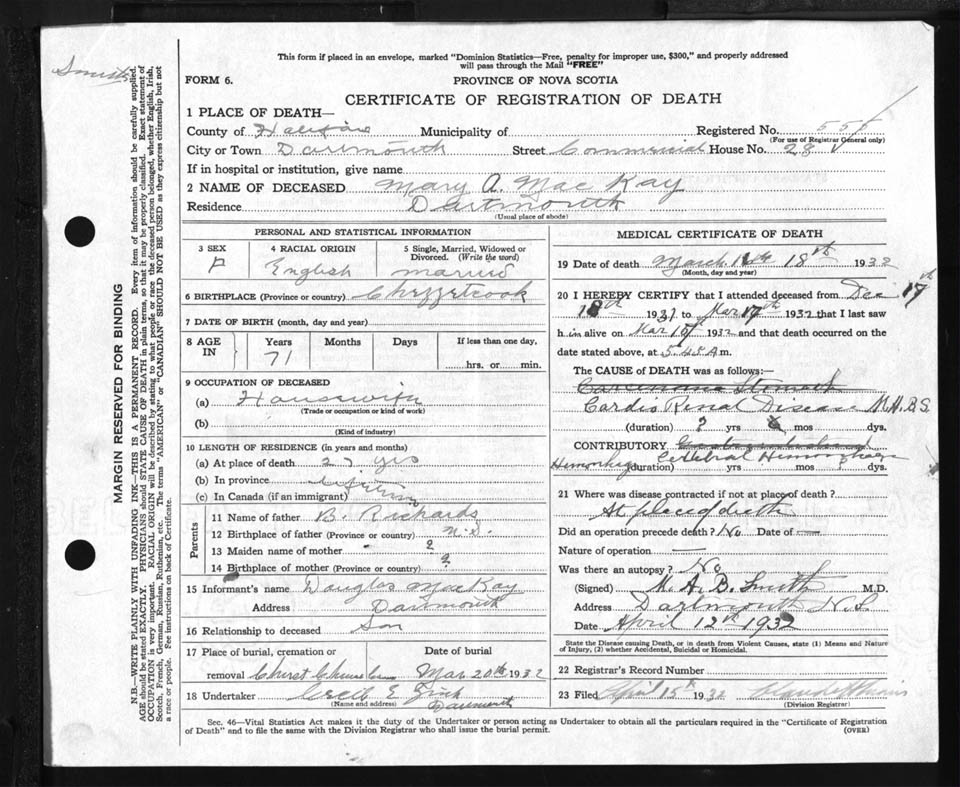 Smith
This form if placed in an envelope, marked "Dominion Statistics—Free, penalty for improper use, $300," and properly addressed
will pass through the Mail "FREE"
FORM 6.
PROVINCE OF NOVA SCOTIA
CERTIFICATE OF REGISTRATION OF DEATH
1 PLACE OF DEATH—
County of Halifax Municipality of Registered No. 555
(For use of Registrar General only)
City or Town Dartmouth Street Commercial House No. 28
If in hospital or institution, give name
2 NAME OF DECEASED Mary A. MacKay
Residence Dartmouth
(Usual place of abode)
PERSONAL AND STATISTICAL INFORMATION
3 SEX 4 RACIAL ORIGIN 5 Single, Married, Widowed or
Divorced. (Write the word)
F English married
6 BIRTHPLACE (Province or country) Chezzetcook
7 DATE OF BIRTH (month, day and year)
8 AGE IN Years Months Days If less than one day,
71 hrs. or min.
9 OCCUPATION OF DECEASED
(a) Housewife
(Trade or occupation or kind of work)
(b)
(Kind of industry)
10 LENGTH OF RESIDENCE (in years and months)
(a) At place of death yrs
(b) In province lifetime
(c) In Canada (if an immigrant)
Parents
11 Name of father B. Richards
12 Birthplace of father (Province or country) N.S.
13 Maiden name of mother ?
14 Birthplace of mother (Province or country) ?
15 Informant's name Douglas MacKay
Address Dartmouth
16 Relationship to deceased Son
17 Place of burial, cremation or Date of burial
removal Christ Church Mar 20th 1932
18 Undertaker E. Zink
(Name and address) Dartmouth
MEDICAL CERTIFICATE OF DEATH
19 Date of death March 18th 1932
(Month, day and year)
20 I HEREBY CERTIFY that I attended deceased from Dec 17th
18th 1931 to Mar 17th 1932 that I last saw
h im alive on Mar 1932 and that death occurred on
date stated above, at 5.45 A m.
The CAUSE of DEATH was as follows:—
Carcinoma Stomach
Cardio Renal Disease M.A.B.S.
(duration) ? yrs mos dys.
CONTRIBUTORY
Hemorrhage (duration) Cerebral Hemorrhage yrs mos ? dys.
21 Where was disease contracted if not at place of death?
At place of death
Did an operation precede death? No Date of —
Nature of operation —
Was there an autopsy? No
(Signed) M. A. B. Smith M.D.
Address Dartmouth N.S.
Date April 12th 1932
State the Disease causing Death, or in death from Violent Causes, state (1) Means and Nature
of Injury, (2) whether Accidental, Suicidal or Homicidal.
22 Registrar's Record Number
23 Filed April 15th 1932
(Division Registrar)
Sec. 46—Vital Statistics Act makes it the duty of the Undertaker or person acting as Undertaker to obtain all the particulars required in the "Certificate of Registration
of Death" and to file the same with the Division Registrar who shall issue the burial permit. (OVER)
MARGIN RESERVED FOR BINDING
N.B.—WRITE PLAINLY WITH UNFADING INK—THIS IS A PERMANENT RECORD. Every item of information should be carefully supplied.
AGE should be stated EXACTLY. PHYSICIANS should STATE CAUSE OF DEATH in plain terms, so that it may be properly classified. Exact statement of
OCCUPATION is very important. RACIAL ORIGIN will be described by stating to what people or race the deceased person belonged, whether English, Irish,
Scotch, French, German, Russian, Ruthenian, etc. The terms "AMERICAN" or "CANADIAN" SHOULD NOT BE USED as they express citizenship but not
a race or people. See instructions on back of Certificate.